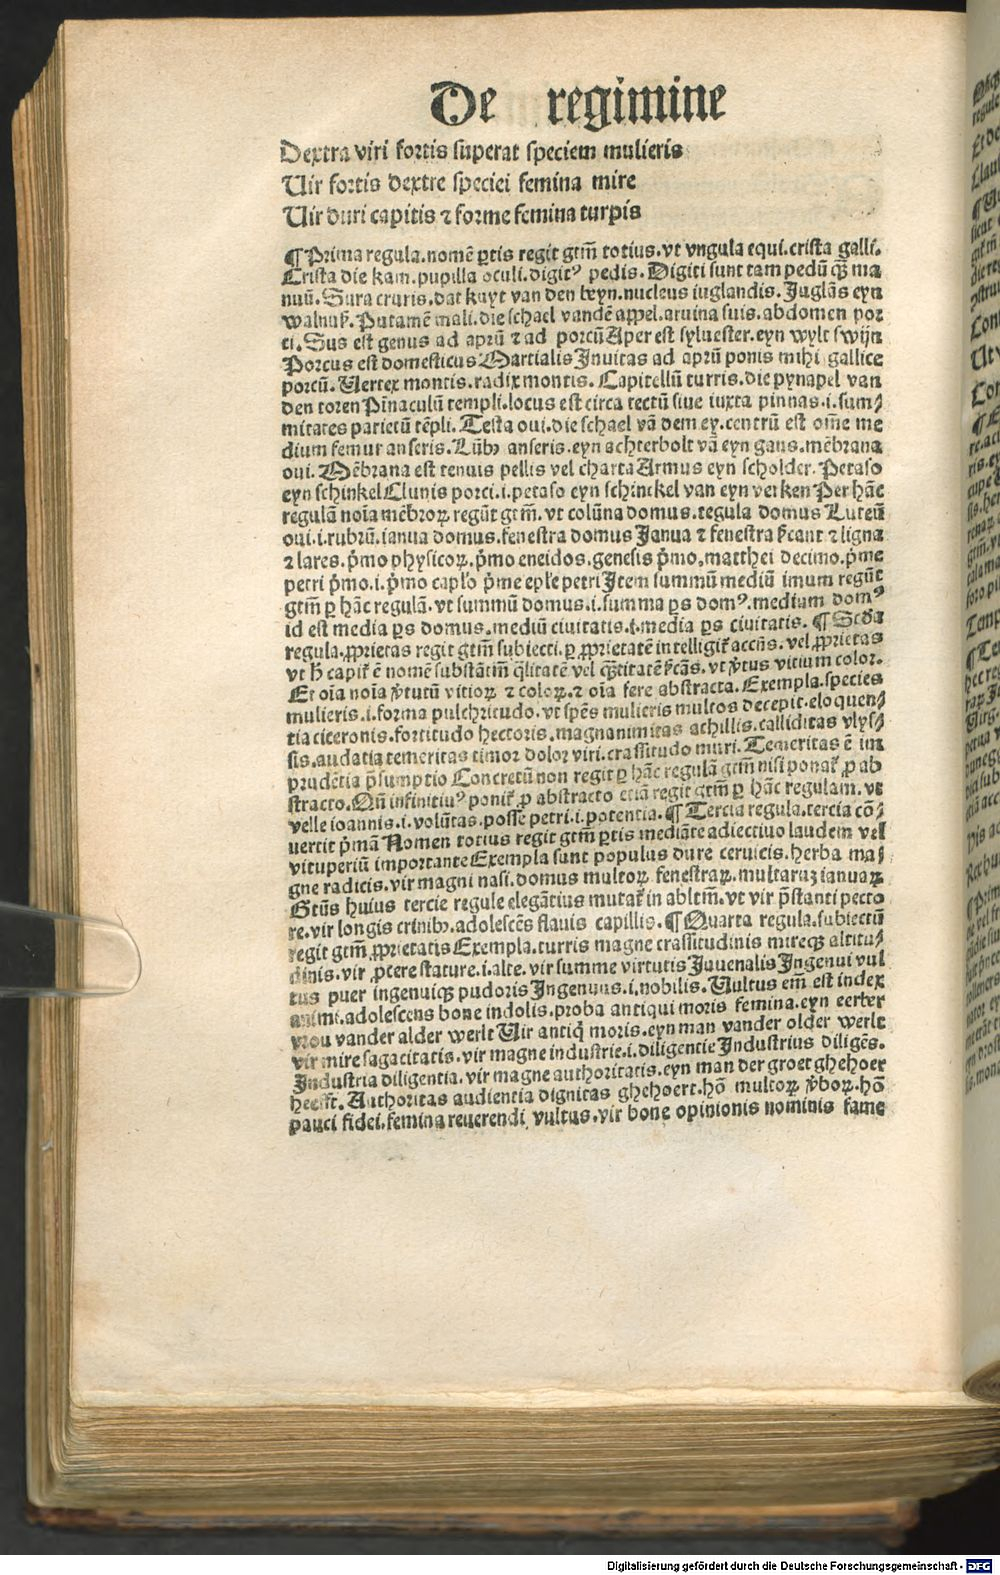 De regimine
Dextra viri fortis superat speciem mulieris
Uir fortis dextre speciei femina mire
Uir duri capitis ⁊ forme femina turpis
¶ Prima regula.nomē ꝑtis regit gtm̄ totius.vt vngula equi.crista galli.
Crista die kam.pupilla oculi.digitꝰ pedis.Digiti sunt tam pedū qꝫ ma
nuū.Sura cruris.dat kuyt van den beyn.nucleus iuglandis.Juglās eyn
walnuß.Putamē mali.die schael vandē appel.aruina suis.abdomen por
ci.Sus est genus ad aprū ⁊ ad porcū Aper est syluester.eyn wylt swijn
Porcus est domesticus Martialis Inuitas ad aprū ponis mihi gallice
porcū.Uertex montis.radix montis.Capitellū turris.die pynapel van
den toren Pīnaculū templi.locus est circa tectū siue iuxta pinnas.i.sum⸗
mitates parietū tēpli.Testa oui.die schael vā dem ey.centrū est om̄e me
dium femur anseris.Lūbꝰ anseris.eyn achterbolt vā eyn gans.mēbrana
oui.Mēbrana est tenuis pellis vel charta Armus eyn scholder.Petaso
eyn schinkel Clunis porci.i.petaso eyn schinckel van eyn verken Per hāc
regulā noīa mēbroꝝ regūt gtm̄.vt colūna domus.tegula domus Luteū
oui.i.rubrū.ianua domus.fenestra domus Janua ⁊ fenestra ſcant ⁊ ligna
⁊ lares.pͥmo physicoꝝ.pͥmo eneidos.genesis pͥmo.matthei decimo.pͥme
petri pͥmo.i.pͥmo caplo pͥme eple petri Jtem summū mediū imum regūt
gtm̄ ꝑ hāc regulā.vt summū domus.i.summa ꝑs domꝰ.medium domꝰ
id est media ꝑs domus.mediū ciuitatis.i.media ꝑs ciuitatis. ¶ Scd̄a
regula.ꝓprietas regit gtm̄ subiecti.ꝑ ꝓprietatē intelligiť accn̄s.vel ꝓprietas
vt h̄ capiť ē nomē substātim̄ q̄litatē vel qͣtitatē ſcās.vt v̓tus vitium color.
Et oīa noīa v̓tutū vitioꝝ ⁊ coloꝝ.⁊ oīa fere abstracta.Exempla.species
mulieris.i.forma pulchritudo.vt spēs mulieris multos decepit.eloquen⸗
tia ciceronis.fortitudo hectoris.magnanimitas achillis.calliditas vlys⸗
sis.audatia temeritas timor dolor viri.crassitudo muri.Temeritas ē im
prudētia p̄sumptio Concretū non regit ꝑ hāc regulā gtm̄ nisi ponať ꝓ ab
stracto.Qn̄ infinitiuꝰ poniť ꝓ abstracto etiā regit gtm̄ ꝑ hāc regulam.vt
velle ioannis.i.volūtas.posse petri.i.potentia.¶ Tercia regula.tercia cō⸗
uertit pͥmā Nomen totius regit gtm̄ ꝑtis mediāte adiectiuo laudem vel
vituperiū importante Exempla sunt populus dure ceruicis.herba ma⸗
gne radicis.vir magni nasi.domus multoꝝ fenestraꝝ.multaruꝫ ianuaꝝ
Gtūs huius tercie regule elegātius mutať in abltm̄.vt vir p̄stanti pecto
re.vir longis crinibꝰ.adolescēs flauis capillis.¶ Quarta regula.subiectū
regit gtm̄ ꝓprietatis Exempla.turris magne crassitudinis mireqꝫ altitu⸗
dinis.vir ꝓcere stature.i.alte.vir summe virtutis Juuenalis Jngenui vul
tus puer ingenuiqꝫ pudoris Jngenuus.i.nobilis.Uultus em̄ est index
animi.adolescens bone indolis.proba antiqui moris femina.eyn eerber
vrou vander alder werlt Uir antiq̄ moris.eyn man vander older werlt
vir mire sagacitatis.vir magne industrie.i.diligentie Jndustrius diligēs.
Jndustria diligentia.vir magne authoritatis.eyn man der groet ghehoer
heefft.Authoritas audientia dignitas ghehoert.hō multoꝝ v̓boꝝ.hō
pauci fidei.femina reuerendi vultus.vir bone opinionis nominis fame
Digitalisierung gefördert durch die Deutsche Forschungsgemeinschaft - DFG